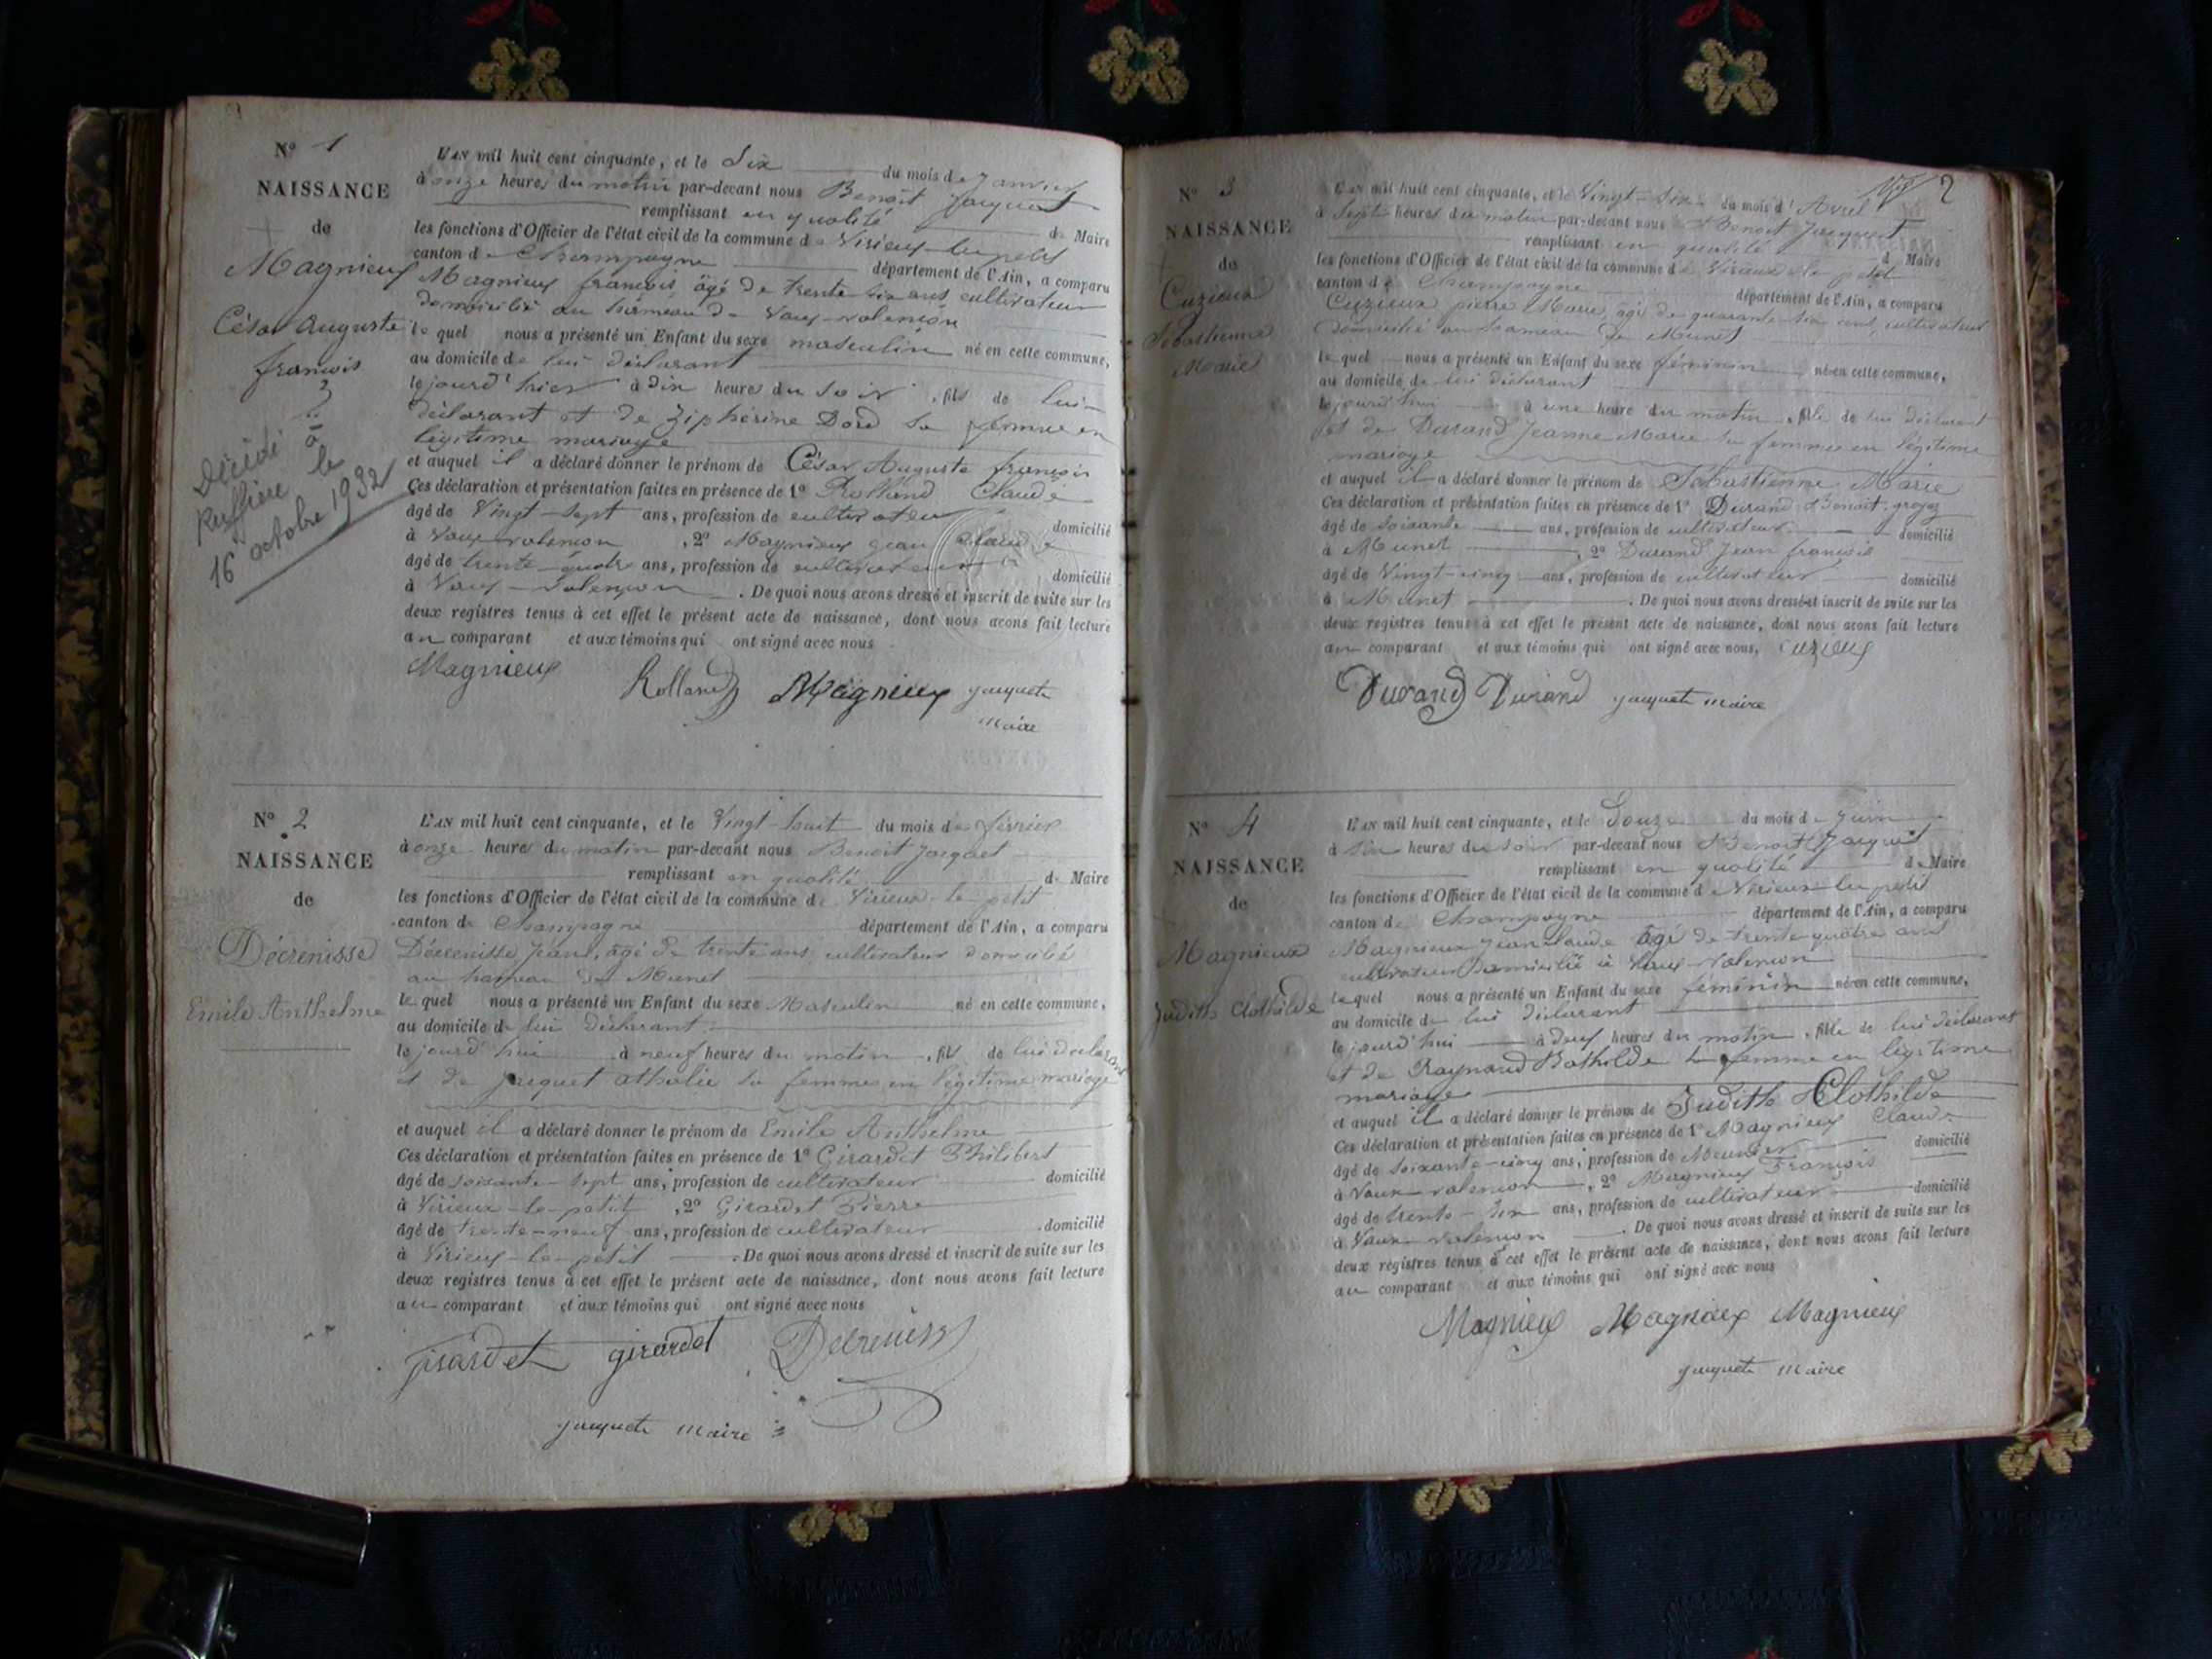 N° 1
NAISSANCE
de
Magnieux
César Auguste
françois
Décédé à
Ruffieu le
16 octobre 1932
L'AN mil huit cent cinquante, et le Six du mois de Janvier
à onze heures du matin par-devant nous Benoit Jacquet
remplissant en qualité de Maire
les fonctions d'Officier de l'état civil de la commune de Virieux-le-petit
canton de Champagne département de l'Ain, a comparu
Magnieux françois, âgé de trente six ans, cultivateur
domicilié au hameau de Vaux-valencon
le quel nous a présenté un Enfant du sexe masculin né en cette commune,
au domicile de lui déclarant
le jourd'hier à dix heures du soir, fils de lui-
déclarant et de Ziphérine Dord sa femme en
légitime mariage
et auquel il a déclaré donner le prénom de César Auguste françois
Ces déclaration et présentation faites en présence de 1° Rolland Claude
âgé de Vingt-sept ans, profession de cultivateur domicilié
à Vaux-valencon, 2° Magnieux jean claude
âgé de trente-quatre ans, profession de cultivateur domicilié
à Vaux-valencon. De quoi nous avons dressé et inscrit de suite sur les
deux registres tenus à cet effet le présent acte de naissance, dont nous avons fait lecture
au comparant et aux témoins qui ont signé avec nous
Magnieux Rolland Magnieux jacquet
maire
N° 2
NAISSANCE
de
Décrenisse
Emile Anthelme
L'AN mil huit cent cinquante, et le Vingt-huit du mois de février
à onze heures du matin par-devant nous Benoit Jacquet
remplissant en qualité de Maire
les fonctions d'Officier de l'état civil de la commune de Virieux-le-petit
canton de Champagne département de l'Ain, a comparu
Décrenisse Jean, âgé de trente ans, cultivateur domicilié
au hameau de Munet
le quel nous a présenté un Enfant du sexe Masculin né en cette commune,
au domicile de lui déclarant
le jourd'hui à neuf heures du matin, fils de lui déclarant
et de Jacquet athalie sa femme en légitime mariage
et auquel il a déclaré donner le prénom de Emile Anthelme
Ces déclaration et présentation faites en présence de 1° Girardet Philibert
âgé de soixante-sept ans, profession de cultivateur domicilié
à Virieux-le-petit, 2° Girardet Pierre
âgé de trente-neuf ans, profession de cultivateur domicilié
à Virieux-le-petit. De quoi nous avons dressé et inscrit de suite sur les
deux registres tenus à cet effet le présent acte de naissance, dont nous avons fait lecture
au comparant et aux témoins qui ont signé avec nous
girardet girardet Décreniss
jacquet maire
2
N° 3
NAISSANCE
de
Cuzieux
Sébastienne
Marie
L'AN mil huit cent cinquante, et le Vingt-Six du mois d'Avril
à Sept heures du matin par-devant nous Benoit Jacquet
remplissant en qualité d Maire
les fonctions d'Officier de l'état civil de la commune de Virieux-le-petit
canton de Champagne département de l'Ain, a comparu
Cuzieux pierre Marie, âgé de quarante-six ans, cultivateur
domicilié au hameau de Munet
le quel nous a présenté un Enfant du sexe féminin né en cette commune,
au domicile de lui déclarant
le jourd'hui à une heure du matin, fille de lui déclarant
et de Durand Jeanne Marie sa femme en légitime
mariage
et auquel il a déclaré donner le prénom de Sébastienne Marie
Ces déclaration et présentation faites en présence de 1° Durand Benoit
âgé de soixante ans, profession de cultivateur domicilié
à Munet, 2° Durand Jean françois
âgé de Vingt-cinq ans, profession de cultivateur domicilié
à Munet. De quoi nous avons dressé et inscrit de suite sur les
deux registres tenus à cet effet le présent acte de naissance, dont nous avons fait lecture
au comparant et aux témoins qui ont signé avec nous. cuzieux
Durand Durand jacquet maire
N° 4
NAISSANCE
de
Magnieux
Judith Clothilde
L'AN mil huit cent cinquante, et le Douze du mois de Juin
à six heures du soir par-devant nous Benoit Jacquet
remplissant en qualité de Maire
les fonctions d'Officier de l'état civil de la commune de Virieux-le-petit
canton de Champagne département de l'Ain, a comparu
Magnieux Jean Claude âgé de trente-quatre ans
cultivateur Domicilié à Vaux-valencon
le quel nous a présenté un Enfant du sexe féminin né en cette commune,
au domicile de lui déclarant
le jourd'hui à deux heures du matin, fille de lui déclarant
et de Raynaud Bathilde sa femme en légitime
mariage
et auquel il a déclaré donner le prénom de Judith Clothilde
Ces déclaration et présentation faites en présence de 1° Magnieux Claude
âgé de soixante-cinq ans, profession de Meunier domicilié
à Vaux-valencon, 2° Magnieux François
âgé de trente-six ans, profession de cultivateur domicilié
à Vaux-valencon. De quoi nous avons dressé et inscrit de suite sur les
deux registres tenus à cet effet le présent acte de naissance, dont nous avons fait lecture
au comparant et aux témoins qui ont signé avec nous
Magnieux Magnieux Magnieux
jacquet maire